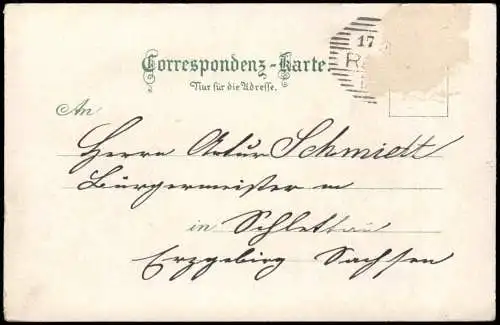 17
R
Correspondenz-Karte.
Nur für die Adresse.
An
Herrn Artur Schmiedt
Bürgermeister in
in Schlettau
Erzgebirg Sachsen